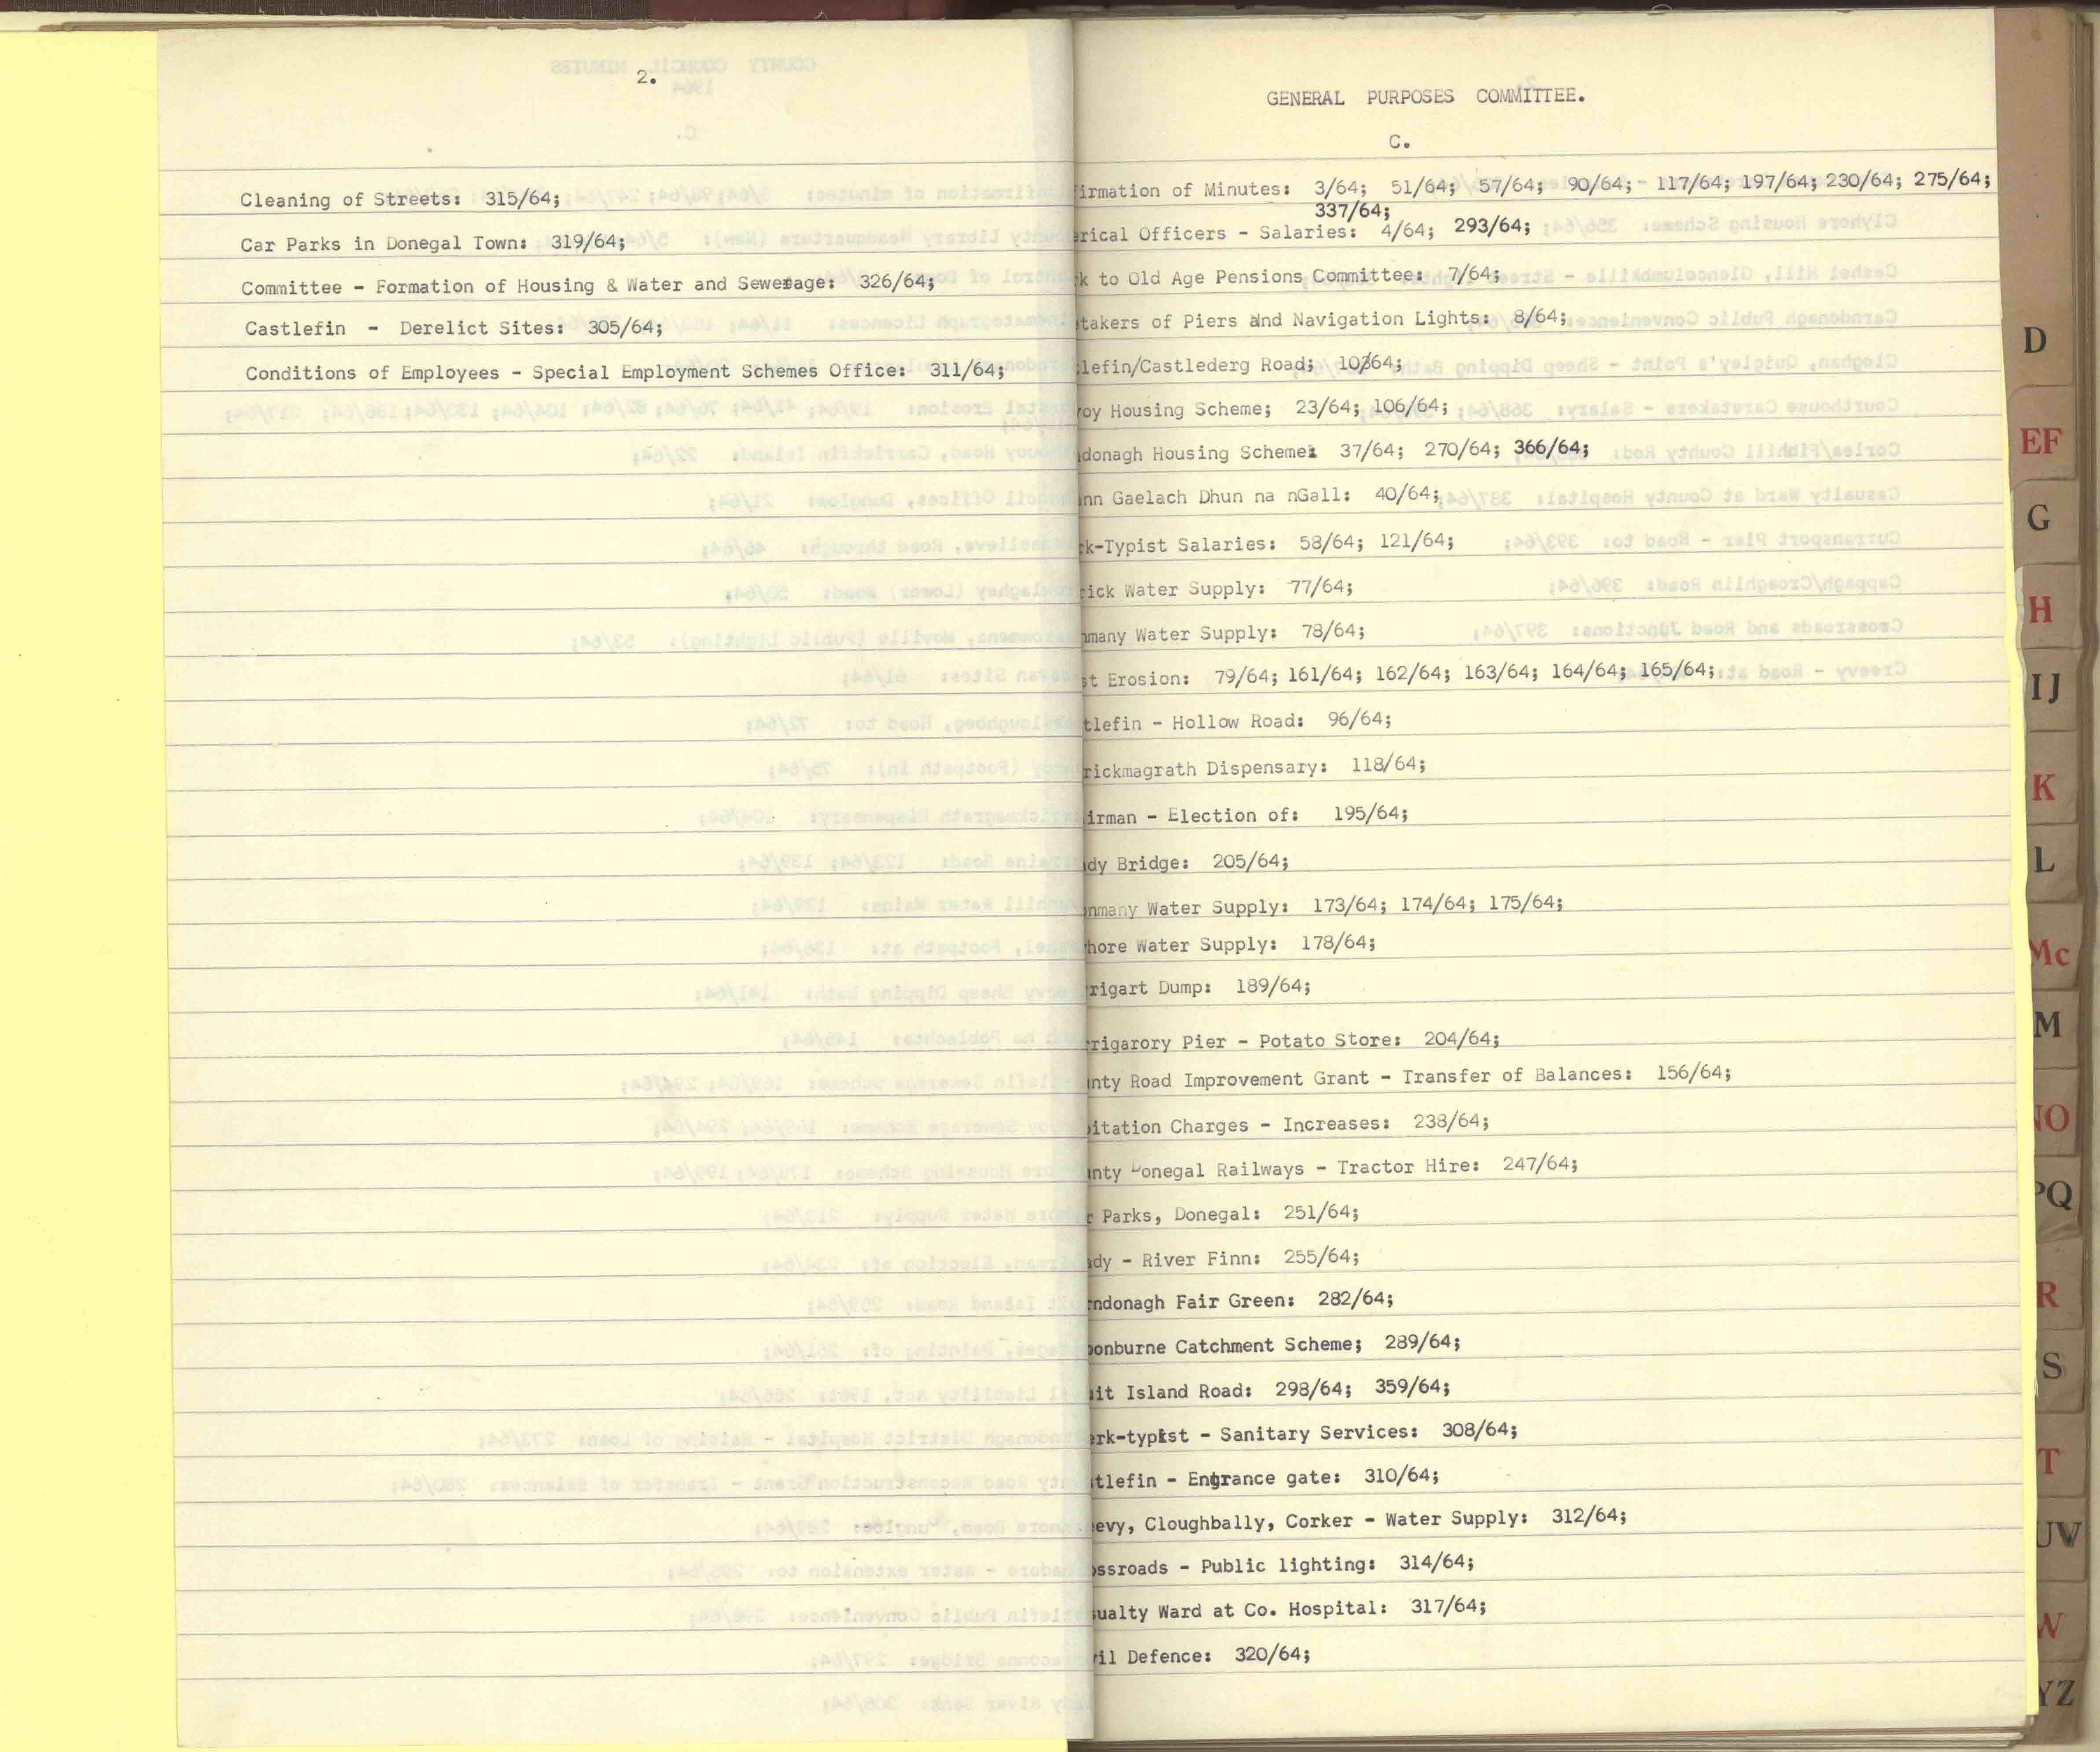 2.
Cleaning of Streets: 315/64;
Car Parks in Donegal Town: 319/64;
Committee - Formation of Housing & Water and Sewerage: 326/64;
Castlefin - Derelict Sites: 305/64;
Conditions of Employees - Special Employment Schemes Office: 311/64;
GENERAL PURPOSES COMMITTEE.
C.
irmation of Minutes: 3/64; 51/64; 57/64; 90/64; - 117/64; 197/64; 230/64; 275/64;
337/64;
rical Officers - Salaries: 4/64; 293/64;
k to Old Age Pensions Committee: 7/64;
takers of Piers and Navigation Lights: 8/64;
lefin/Castlederg Road; 10/64;
oy Housing Scheme; 23/64; 106/64;
donagh Housing Scheme: 37/64; 270/64; 366/64;
nn Gaelach Dhun na nGall: 40/64;
k-Typist Salaries: 58/64; 121/64;
rick Water Supply: 77/64;
nmany Water Supply: 78/64;
t Erosion: 79/64; 161/64; 162/64; 163/64; 164/64; 165/64;
tlefin - Hollow Road: 96/64;
rickmagrath Dispensary: 118/64;
irman - Election of: 195/64;
dy Bridge: 205/64;
nmany Water Supply: 173/64; 174/64; 175/64;
hore Water Supply: 178/64;
rigart Dump: 189/64;
rigarory Pier - Potato Store: 204/64;
nty Road Improvement Grant - Transfer of Balances: 156/64;
itation Charges - Increases: 238/64;
nty Donegal Railways - Tractor Hire: 247/64;
r Parks, Donegal: 251/64;
dy - River Finn: 255/64;
ndonagh Fair Green: 282/64;
onburne Catchment Scheme; 289/64;
it Island Road: 298/64; 359/64;
erk-typist - Sanitary Services: 308/64;
tlefin - Entrance gate: 310/64;
evy, Cloughbally, Corker - Water Supply: 312/64;
ossroads - Public lighting: 314/64;
ualty Ward at Co. Hospital: 317/64;
il Defence: 320/64;
D
EF
G
H
IJ
K
L
Mc
M
NO
PQ
R
S
T
UV
W
YZ